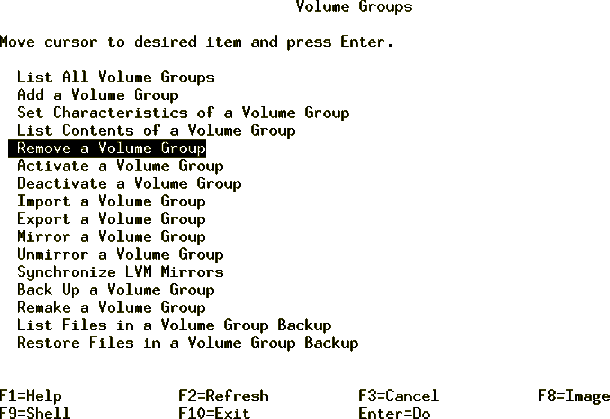 Volume Groups
Move cursor to desired item and press Enter.
List All Volume Groups
Add a Volume Group
Set Characteristics of a Volume Group
List Contents of a Volume Group
Remove a Volume Group
Activate a Volume Group
Deactivate a Volume Group
Import a Volume Group
Export a Volume Group
Mirror a Volume Group
Unmirror a Volume Group
Synchronize LVM Mirrors
Back Up a Volume Group
Remake a Volume Group
List Files in a Volume Group Backup
Restore Files in a Volume Group Backup
F1=Help F2=Refresh F3=Cancel F8=Image
F9=Shell F10=Exit Enter=Do